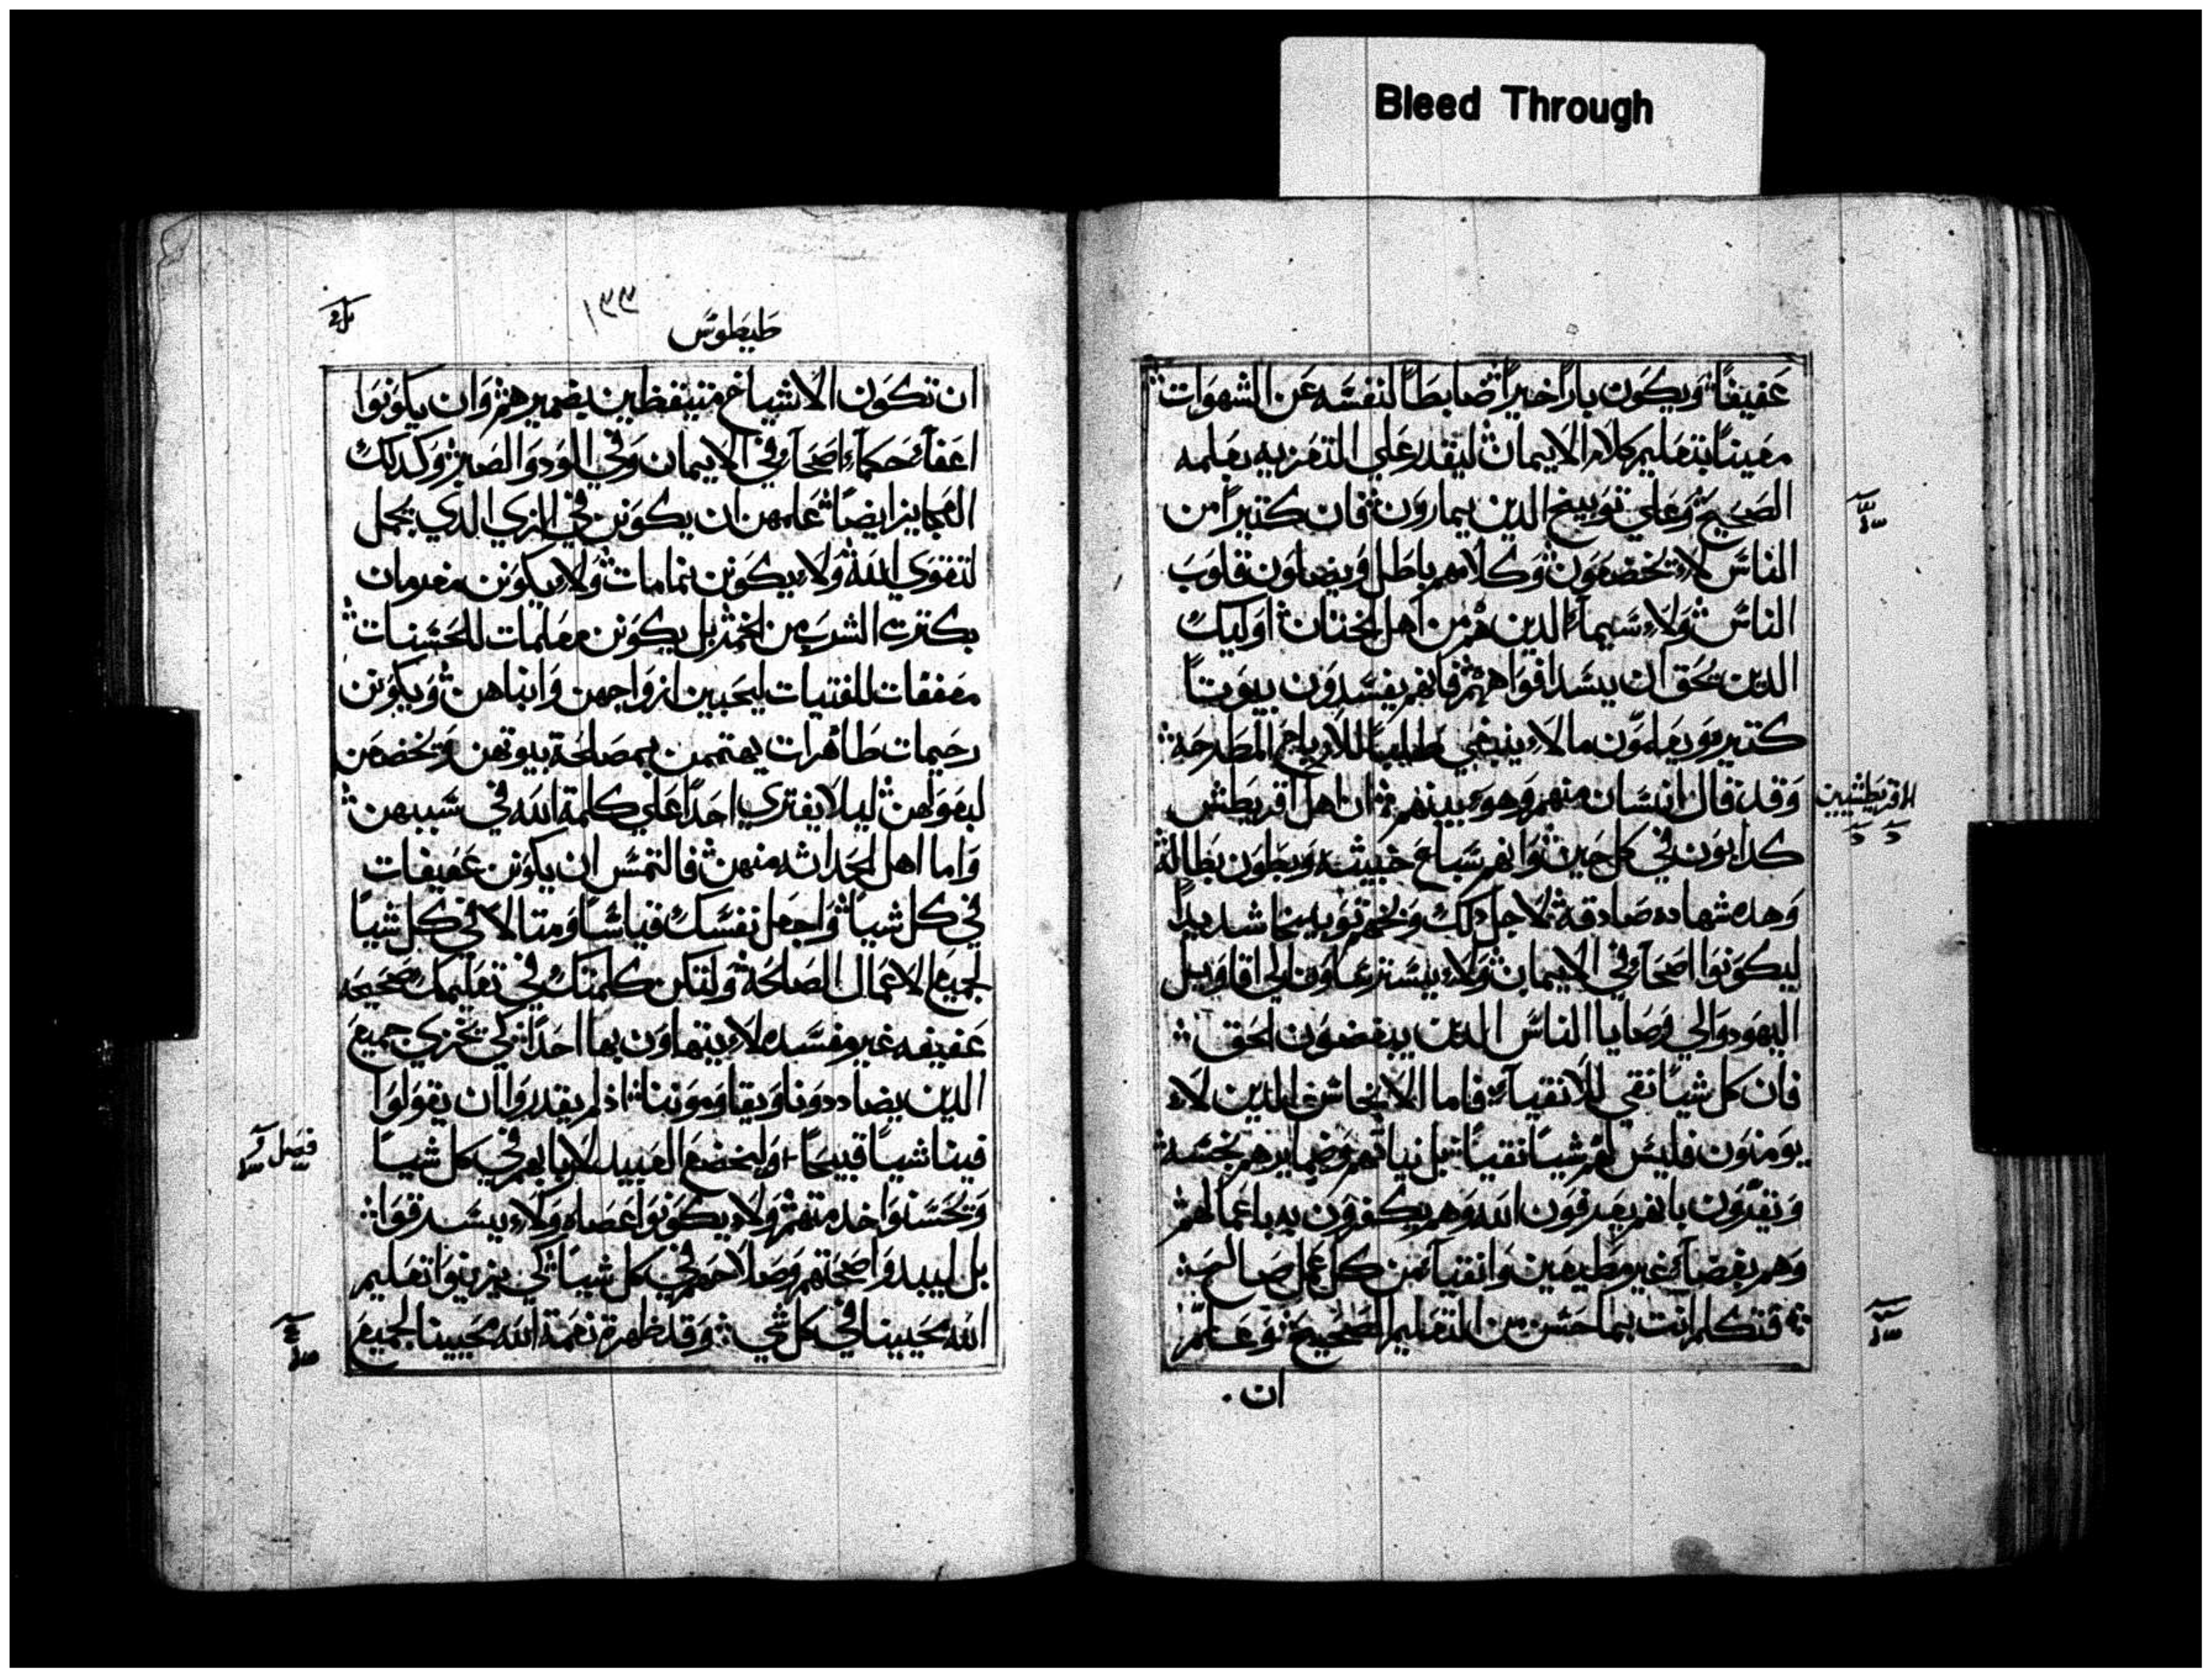 Bleed Through
عَفيفًا وَيكوَن بارًا خيرًا ضابطًا لنفسَه عَن الشهوَات
معَينًا بتعَليم كلام الايمان ليقدر عَلي التعَزيه بعَلمه
الصَحيحَ وَعَلي توَبيخ الدين يمارون فان كتيرًا من
الناسَ لا يخضعَوَن وَكلامهم باطل وَيضلوَن قلوَبَ
الناسَ وَلا سَيما الدين هم من اهل الختان اوَليك
الدين يحَق ان يسَد افوَاههم فانهم يفسَدوَن بيوَتًا
كتيره وَيعَلموَن ما لا ينبغي طلبًا للارباح المطرحَه
وَقد قال انسَان منهم وَهوَ نبيهم ان اهل اقريطش
الاقريطشيين
كدابوَن في كل حَين وَانهم سَباعَ خبيثه وَبطوَن بطاله
وَهده شهاده صَادقه لاجل دلك وَبخهم توَبيخا شديدًا
ليكوَنوَا اصَحَاء في الايمان وَلا يسَترعَوا الي اقاوَيل
اليهوَد وَالي وَصَايا الناسَ الدين يبغضوَن الحَق
فان كل شيًا نقي للانقياء فاما الانجاس الدين لا
يوَمنوَن فليسَ لهم شيًا نقيًا بل نياتهم وَضمايرهم نجسَه
وَيقرّوَن بانهم يعَرفوَن الله وَهم يكفروَن به باعَمالهم
وَهم بغضَاء غير مطيعَين وَانقياء من كل عَمل صَالح
فتكلم انت بما حَسَن من التعَليم الصَحيحَ وَعَلّم
ان
طيطوَسَ
١٣٣
ان تكوَن الاشياخ متيقظين بضميرهم وَان يكوَنوَا
اعَفاء حَكماء اصَحَاء في الايمان وَفي الوَد وَالصَبر وَكدلك
العَجايز ايضًا عَلمهن ان يكوَنن في الزي الدي يجمل
لتقوَي الله وَلا يكوَنن نمامات وَلا يكوَنن مغرمات
بكترت الشرب من الخمر بل يكوَنن معَلمات للحَسَنات
معَففات للفتيات ليحَبين ازوَاجهن وَابناهن وَيكوَنن
رحَيمات طاهرات يهتممن بمصَلحَة بيوَتهن وَيخضعَن
لبعَوَلهن ليلا يفتري احَدًا عَلي كلمة الله في سَببهن
وَاما اهل الحَداثه منهن فالتمسَ ان يكوَنن عَفيفات
في كل شيًا وَاجعَل نفسَك قياسًا وَمتالا في كل شيًا
لجميعَ الاعَمال الصَالحَة وَلتكن كلمتك في تعَليمك صَحَيحَه
عَفيفه غير مفسَده لا يتهاوَن بها احَدًا لكي يخزي جميعَ
الدين يضاددوَنا وَيقاوَموَننا اذ لم يقدروَا ان يقوَلوَا
فينا شيًا قبيحًا وَليخضعَ العَبيد لاربابهم في كل شيًا
فصَل
وَيحَسَنوَا خدمتهم وَلا يكوَنوَا عَصَاه وَلا يسَرقوَا
بل ليبدوَا صَحَتهم وَصَلاحَهم في كل شيًا لكي يزينوَا تعَليم
الله محَيينا في كل شي وَقد ظهرة نعَمة الله محَيينا لجميعَ